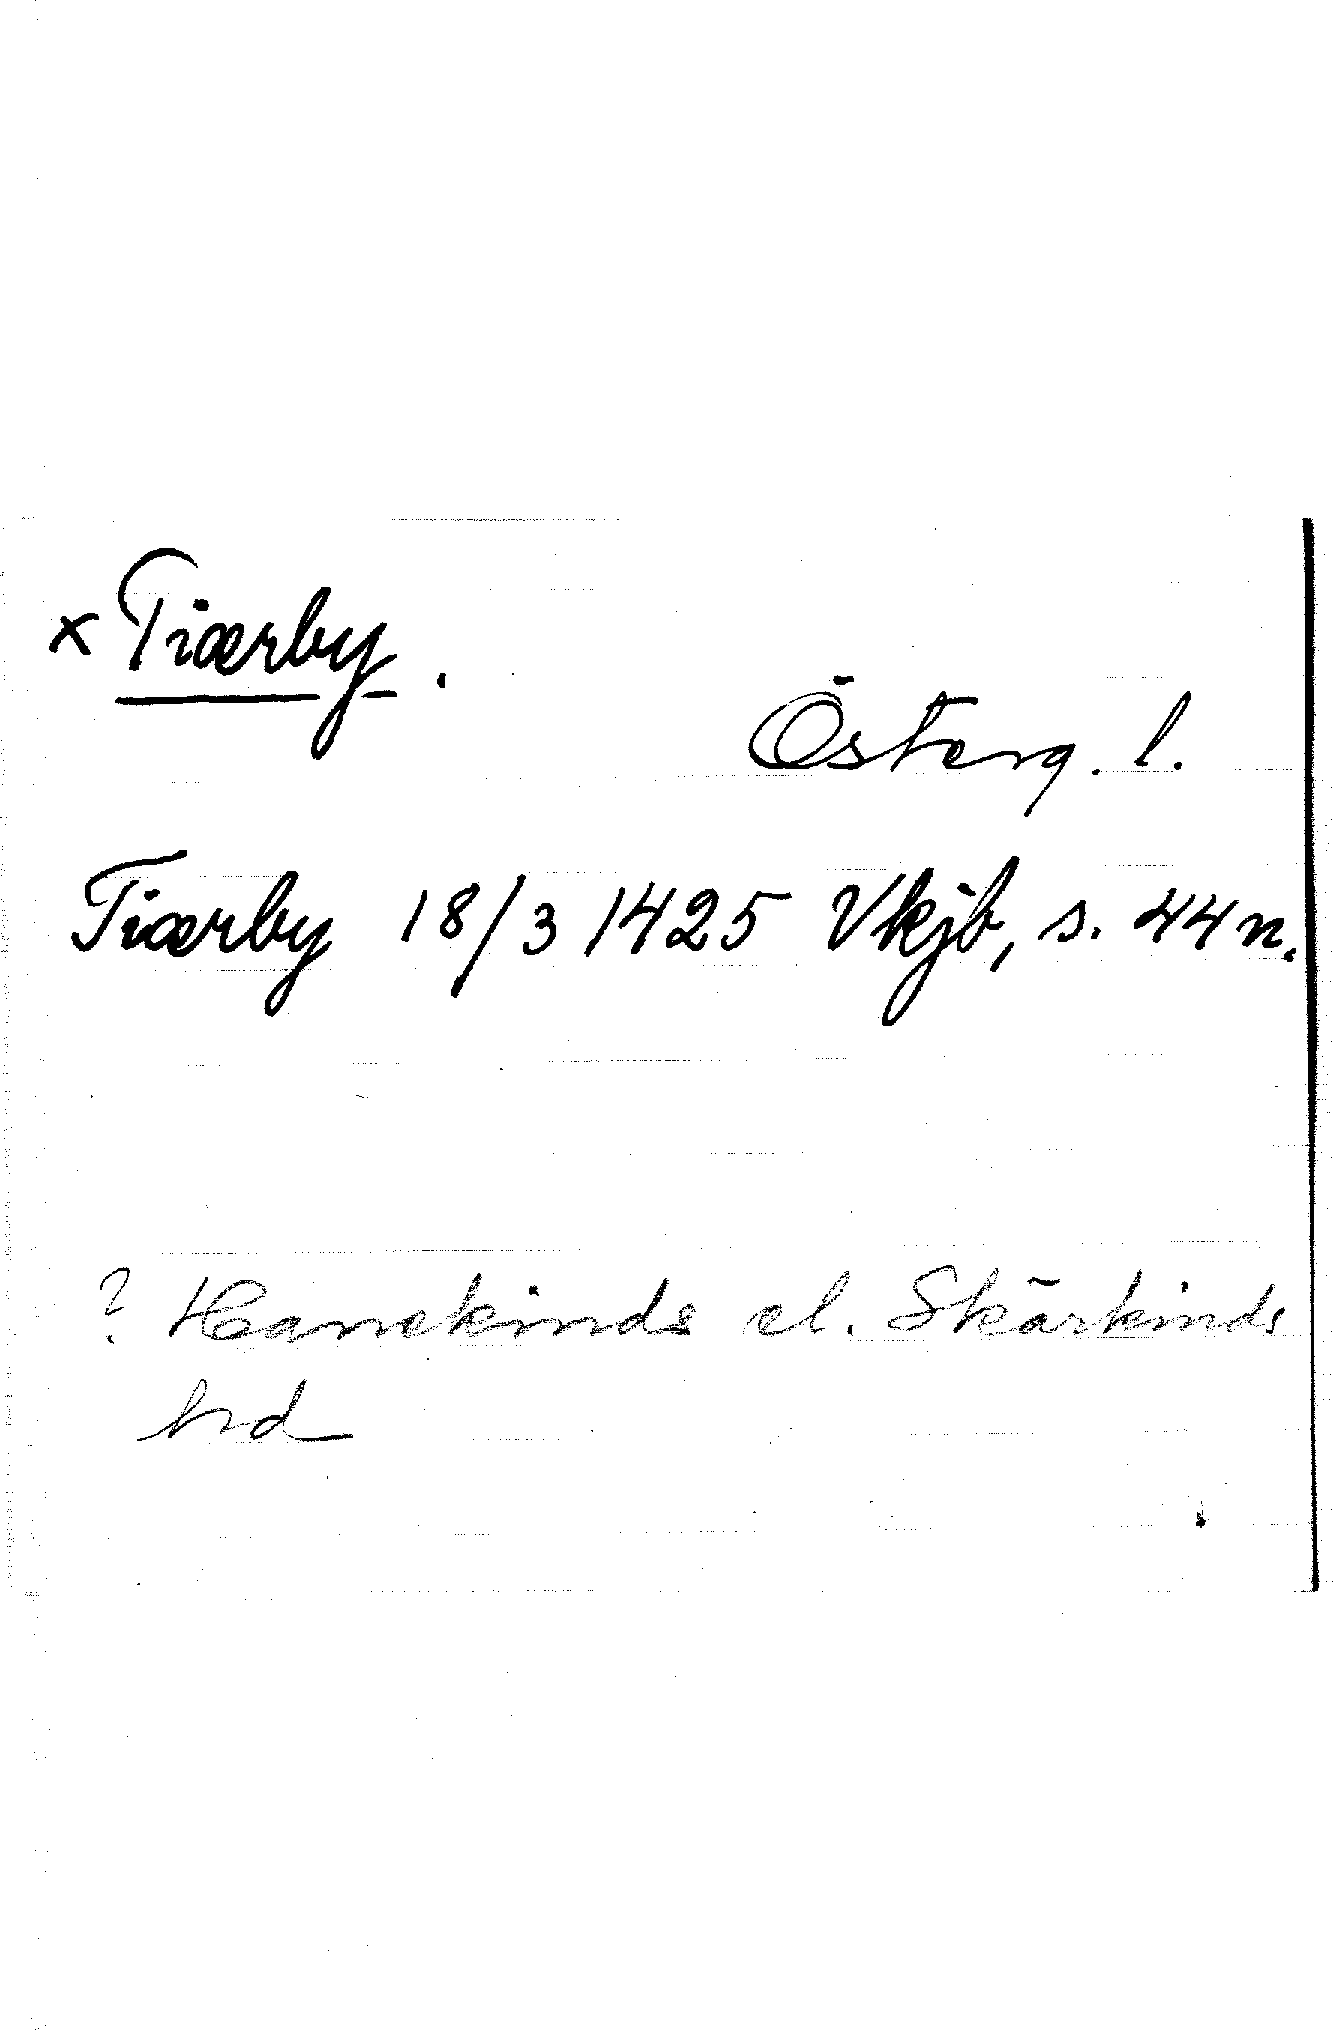 x Tiærby.
Österg. l.
Tiærby 18/3 1425 Vkjb, s. 44 n.
? Hanekinds el. Skärkinds
hrd